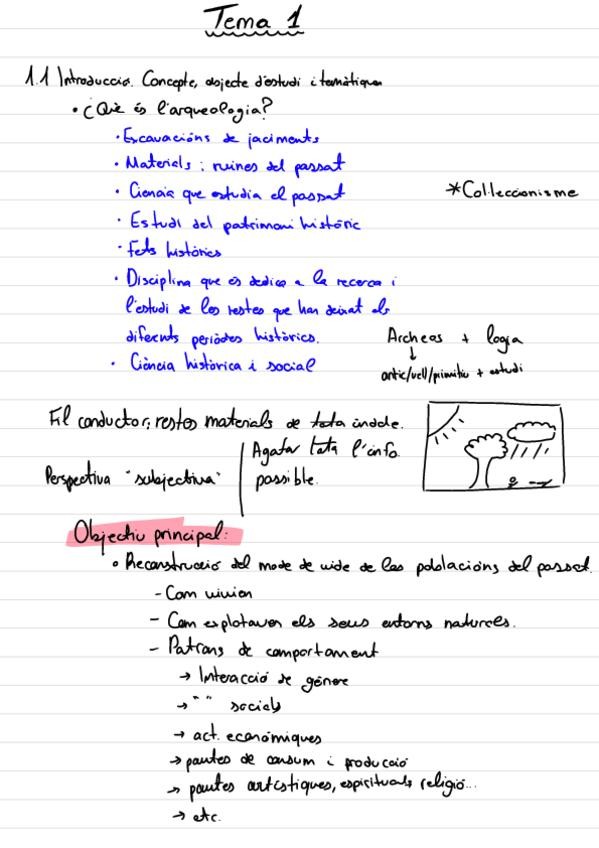 Tema 1
1.1 Introducció. Concepte, objecte d'estudi i temàtiques
• ¿Què és l'arqueologia?
• Excavacións de jaciments
• Materials i ruines del passat
• Ciencia que estudia el passat
*Col·leccionisme
• Estudi del patrimoni històric
• fets històrics
• Disciplina que es dedica a la recerca i
l'estudi de les restes que han deixat els
diferents periòdes històrics.
Archeos + logia
↓
antic/vell/primitiu + estudi
• Ciència històrica i social
Fil conductor; restes materials de tota índole.
Perspectiva "subjectiva"
Agafar tota l'info.
possible.
Objectiu principal:
• Reconstrucció del mode de vide de les poblacións del passat.
- Com vivien
- Com explotaven els seus entorns naturels.
- Patrons de comportament
→ Interacció de gènere
→ " " socials
→ act. econòmiques
→ pautes de consum i producció
→ pautes artístiques, espirituals, religió...
→ etc.